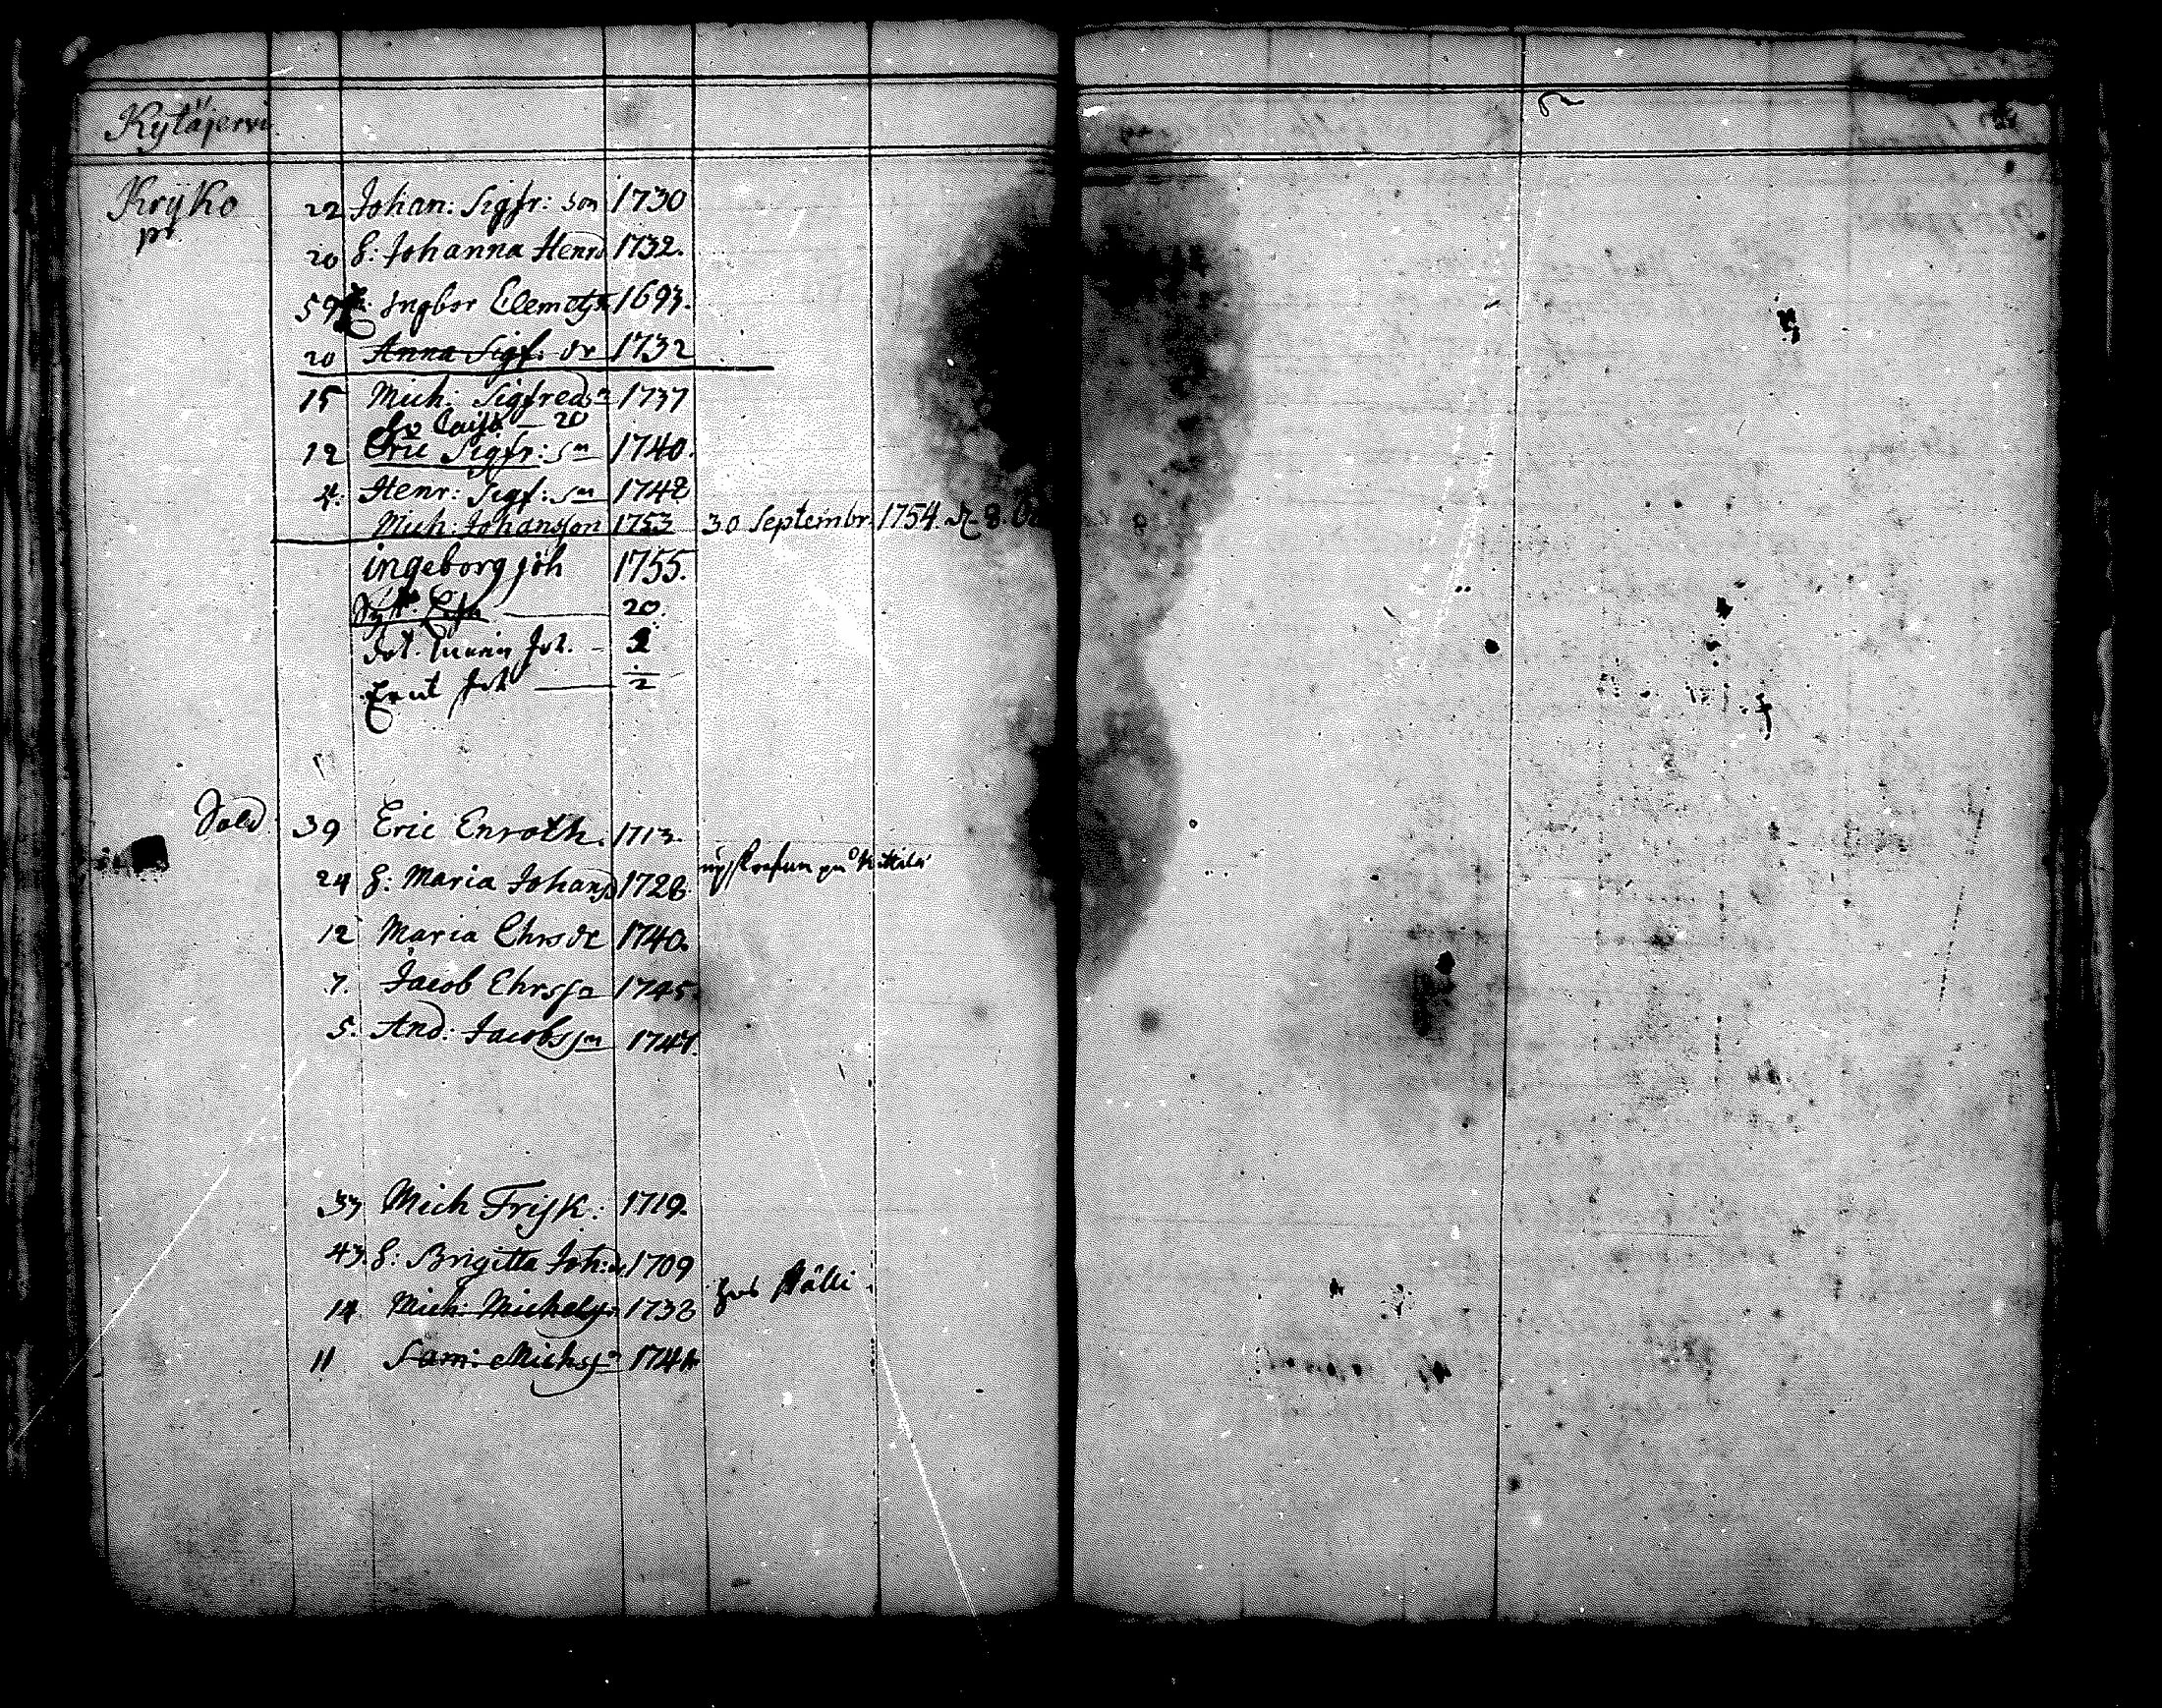 Kytäjervi
Kryko 22 Johan: Sigfr: son 1730
pr.
20 h: Johanna Henrd 1732.
59 Ingbor Clemetz 1693.
20 Anna Sigf: dr 1732
15 Mich: Sigfredsn 1737
Caisa — 20
12 Eric Sigfr: sn 1740.
4. Henr: Sigf: sn 1748
Mich: Johansson 1753 30 Septembr. 1754. 8.
ingeborg joh 1755.
20.
Joh. - 2
Joh — 1/2
Sold. 39 Eric Enroth. 1713.
24 h: Maria Johansd 1728. på Kittilä
12 Maria Ehrsdr 1740.
7. Jacob Ehrssn 1745.
5. And: Jacobssn 1747.
33 Mich Frisk: 1719.
43. h: Brigitta Joh: dr 1709
14 Mich: Michelsn 1738 hos Hälli
11 Sam: Michssn 1741